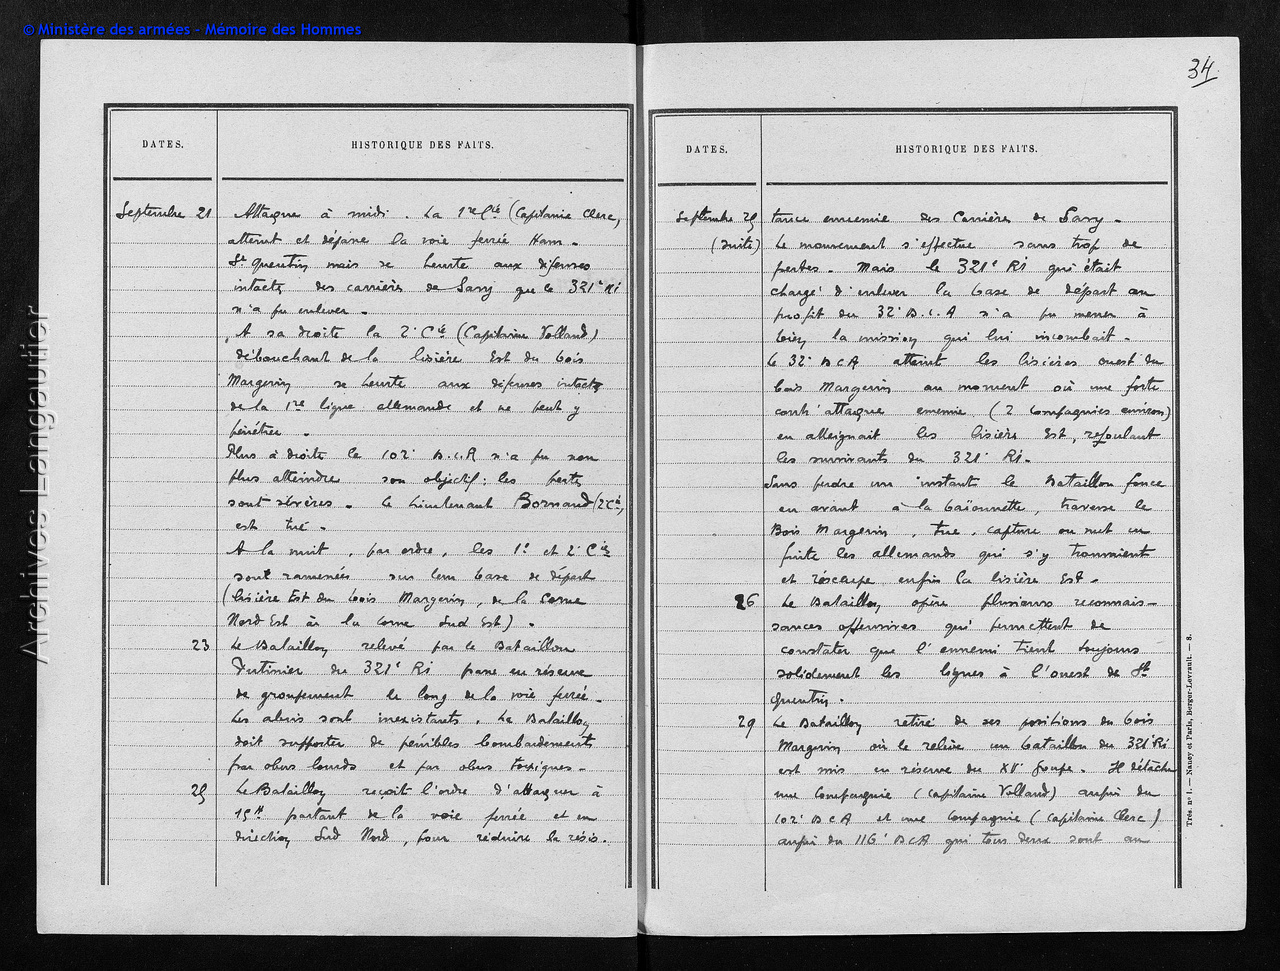 © Ministère des armées - Mémoire des Hommes
Archives Langautier
34
DATES.
HISTORIQUE DES FAITS.
Septembre 21
Attaque à midi. La 1re Cie (Capitaine Clerc)
atteint et dépasse la voie ferrée Ham-
St Quentin mais se heurte aux défenses
intactes des carrières de Savy que le 321e RI
n'a pu enlever.
A sa droite la 2e Cie (Capitaine Volland)
débouchant de la lisière Est du bois
Margerin se heurte aux défenses intactes
de la 1re ligne allemande et ne peut y
pénétrer.
Plus à droite le 102e B.C.A n'a pu non
plus atteindre son objectif: les pertes
sont sévères. Le Lieutenant Bornand (2e Cie)
est tué.
A la nuit, par ordre, les 1e et 2e Cies
sont ramenées sur leur base de départ
(lisière Est du bois Margerin, de la corne
Nord Est à la corne Sud Est).
23
Le Bataillon relevé par le Bataillon
du 321e RI passe en réserve
de groupement le long de la voie ferrée.
Les abris sont inexistants. Le Bataillon
doit supporter de pénibles bombardements
par obus lourds et par obus toxiques.
25
Le Bataillon reçoit l'ordre d'attaquer à
15H partant de la voie ferrée et en
direction Sud Nord, pour réduire la résis-
DATES.
HISTORIQUE DES FAITS.
Septembre 25
(suite)
tance ennemie des Carrières de Savy.
Le mouvement s'effectue sans trop de
pertes. Mais le 321e RI qui était
chargé d'enlever la base de départ au
profit du 32e B.C.A n'a pu mener à
bien la mission qui lui incombait.
Le 32e BCA atteint les lisières ouest du
bois Margerin au moment où une forte
contr'attaque ennemie (2 Compagnies environ)
en atteignait les lisière Est, refoulant
les survivants du 321e RI.
Sans perdre un instant le Bataillon fonce
en avant à la baïonnette, traverse le
Bois Margerin, tue, capture ou met en
fuite les allemands qui s'y trouvaient
et réoccupe enfin la lisière Est.
26
Le Bataillon opère plusieurs reconnais-
sances offensives qui permettent de
constater que l'ennemi tient toujours
solidement les lignes à l'ouest de St
Quentin.
29
Le Bataillon retiré de ses positions du bois
Margerin où le relève un bataillon du 321e RI
est mis en réserve du XVe Groupe. Il détache
une Compagnie (Capitaine Volland) auprès du
102e BCA et une Compagnie (Capitaine Clerc)
auprès du 116e BCA qui tous deux sont au
Trés. no 1. — Nancy et Paris, Berger-Levrault. — 8.